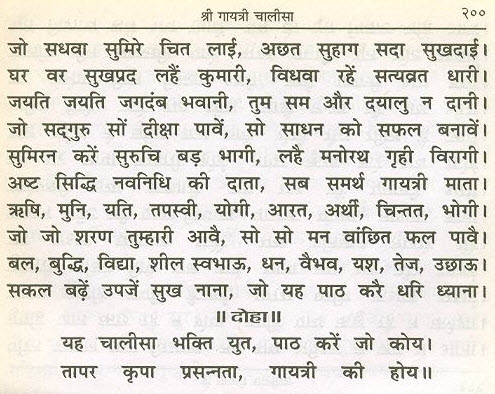 श्री गायत्री चालीसा २००
जो सधवा सुमिरे चित लाई, अछत सुहाग सदा सुखदाई।
घर वर सुखप्रद लहैं कुमारी, विधवा रहें सत्यव्रत धारी।
जयति जयति जगदंब भवानी, तुम सम और दयालु न दानी।
जो सद्गुरु सों दीक्षा पावें, सो साधन को सफल बनावें।
सुमिरन करें सुरुचि बड़ भागी, लहै मनोरथ गृही विरागी।
अष्ट सिद्धि नवनिधि की दाता, सब समर्थ गायत्री माता।
ऋषि, मुनि, यति, तपस्वी, योगी, आरत, अर्थी, चिन्तत, भोगी।
जो जो शरण तुम्हारी आवै, सो सो मन वांछित फल पावै।
बल, बुद्धि, विद्या, शील स्वभाऊ, धन, वैभव, यश, तेज, उछाऊ।
सकल बढ़ें उपजें सुख नाना, जो यह पाठ करै धरि ध्याना।
॥ दोहा॥
यह चालीसा भक्ति युत, पाठ करें जो कोय।
तापर कृपा प्रसन्नता, गायत्री की होय॥